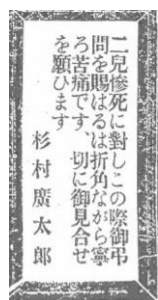 二兒慘死に對しこの際御弔
問を賜はるは折角ながら寧
ろ苦痛です、切に御見合せ
を願ひます
杉村廣太郎